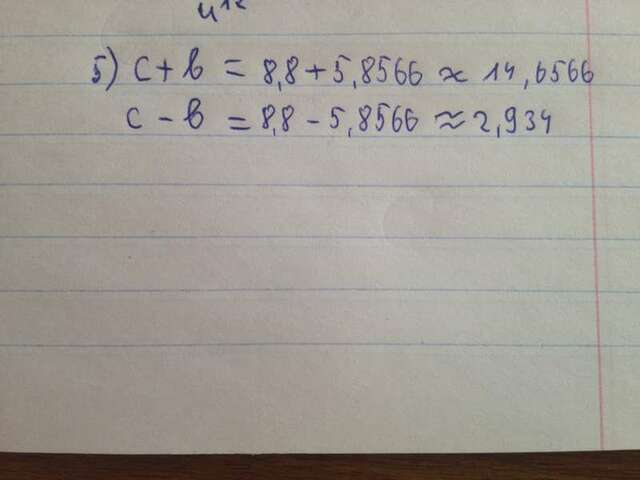 5) c + b = 8,8 + 5,8566 ≈ 14,6566
c - b = 8,8 - 5,8566 ≈ 2,934